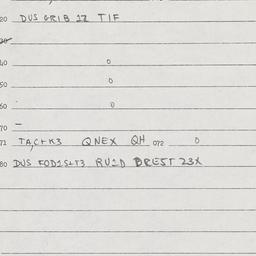 20 DUS GRIB 12 TIF
30
40 0
50 0
60 0
70 —
71 QNEX QH 072 0
80 DUS BREST 23X